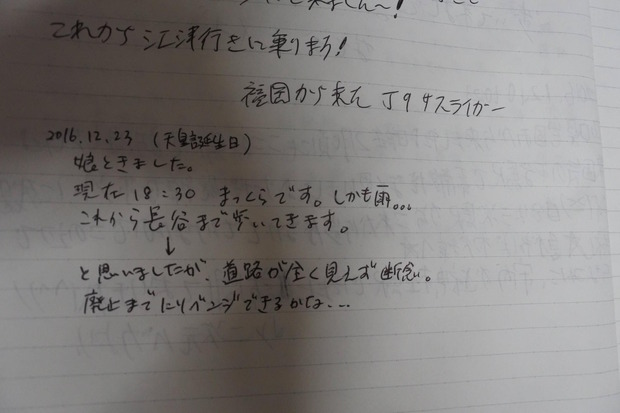 これから江津行きに乗ります!
福岡から来た J94スライガー
2016.12.23 (天皇誕生日)
娘ときました。
現在18:30 まっくらです。しかも雨。。。
これから長谷まで歩いてきます。
↓
と思いましたが、道路が全く見えず断念。
廃止までにリベンジできるかな...